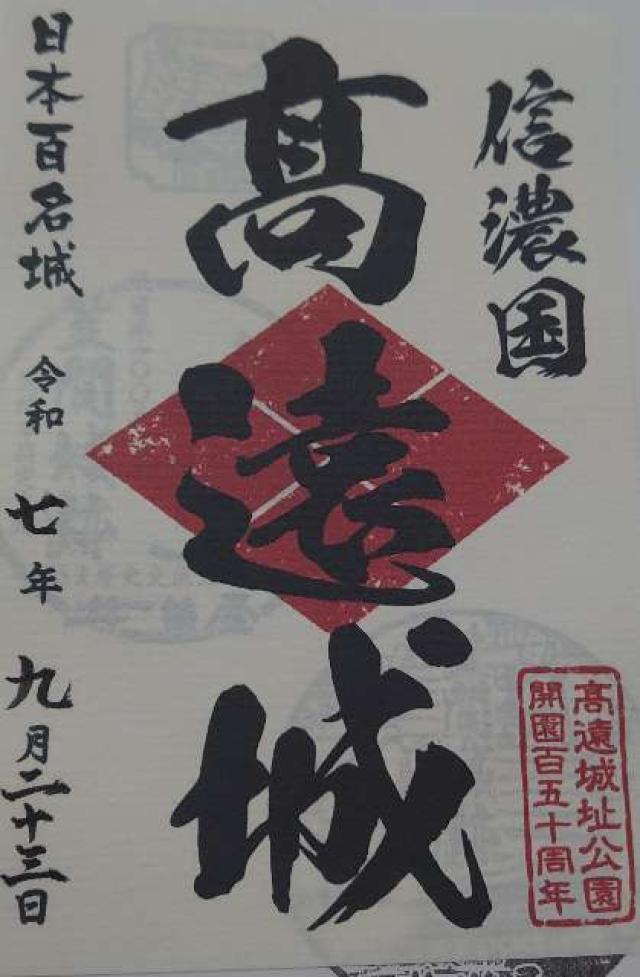 信濃国
髙遠城
日本百名城
令和七年九月二十三日
髙遠城址公園
開園百五十周年